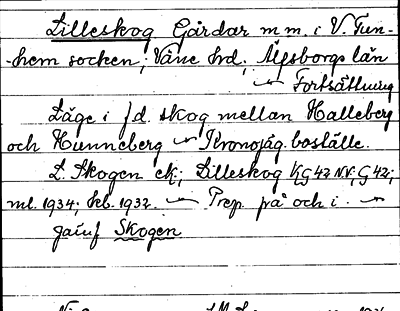 Lilleskog Gårdar m.m. i V. Tun-
-hem socken; Väne hrd; Älfsborgs län
~ Fortsättning
Läge i f.d. skog mellan Halleberg
och Hunneberg ~ Kronojäg. boställe.
L. Skogen ek; Lilleskog KG 42 NV; G 42;
ml. 1934; Seb. 1932. ~ Prep. på och i. ~
jaiuf Skogen